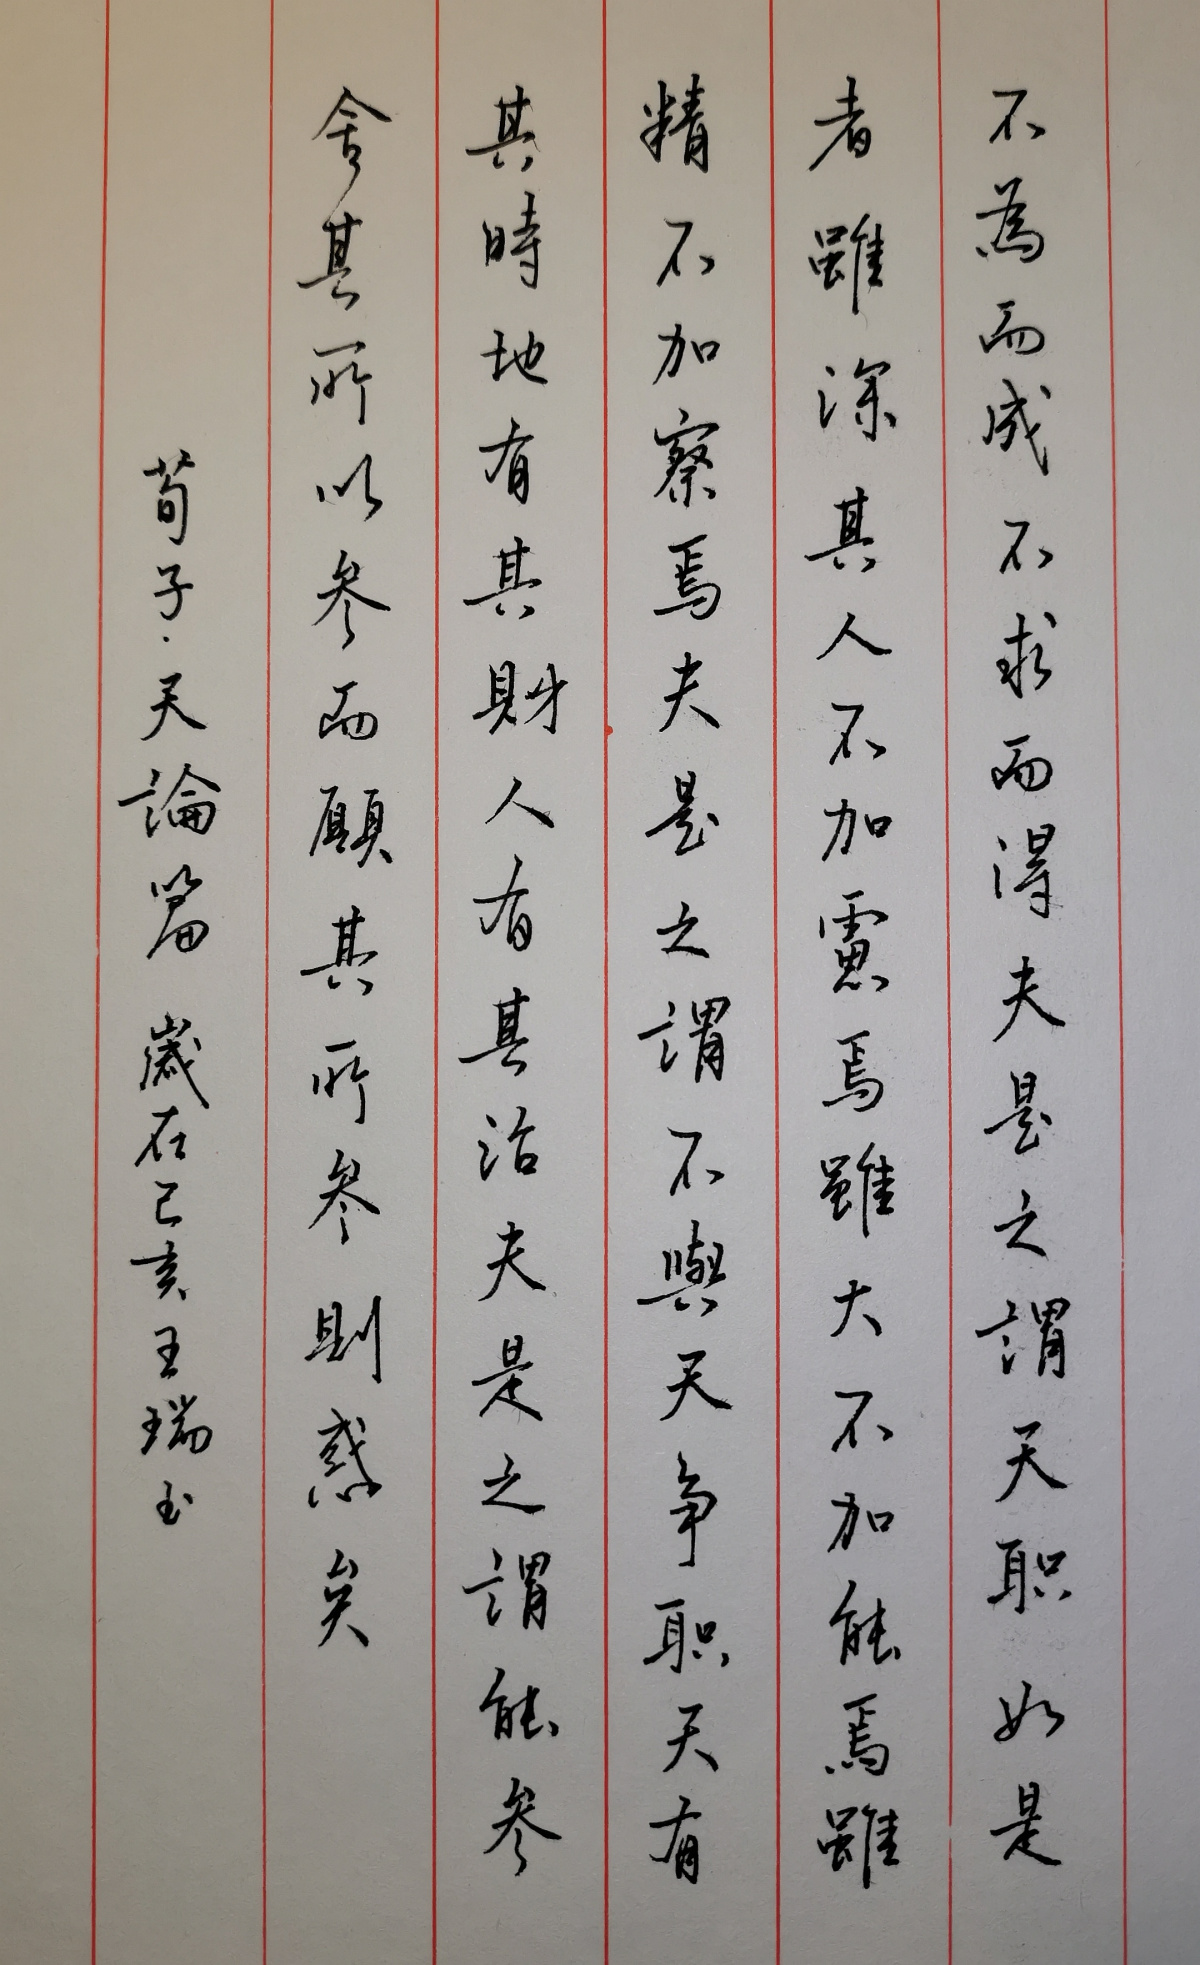 不為而成不求而得夫是之謂天职如是
者雖深其人不加慮焉雖大不加能焉雖
精不加察焉夫是之謂不與天争职天有
其時地有其財人有其治夫是之謂能参
舍其所以参而願其所参則惑矣
荀子·天論篇 歲在己亥王瑞玉